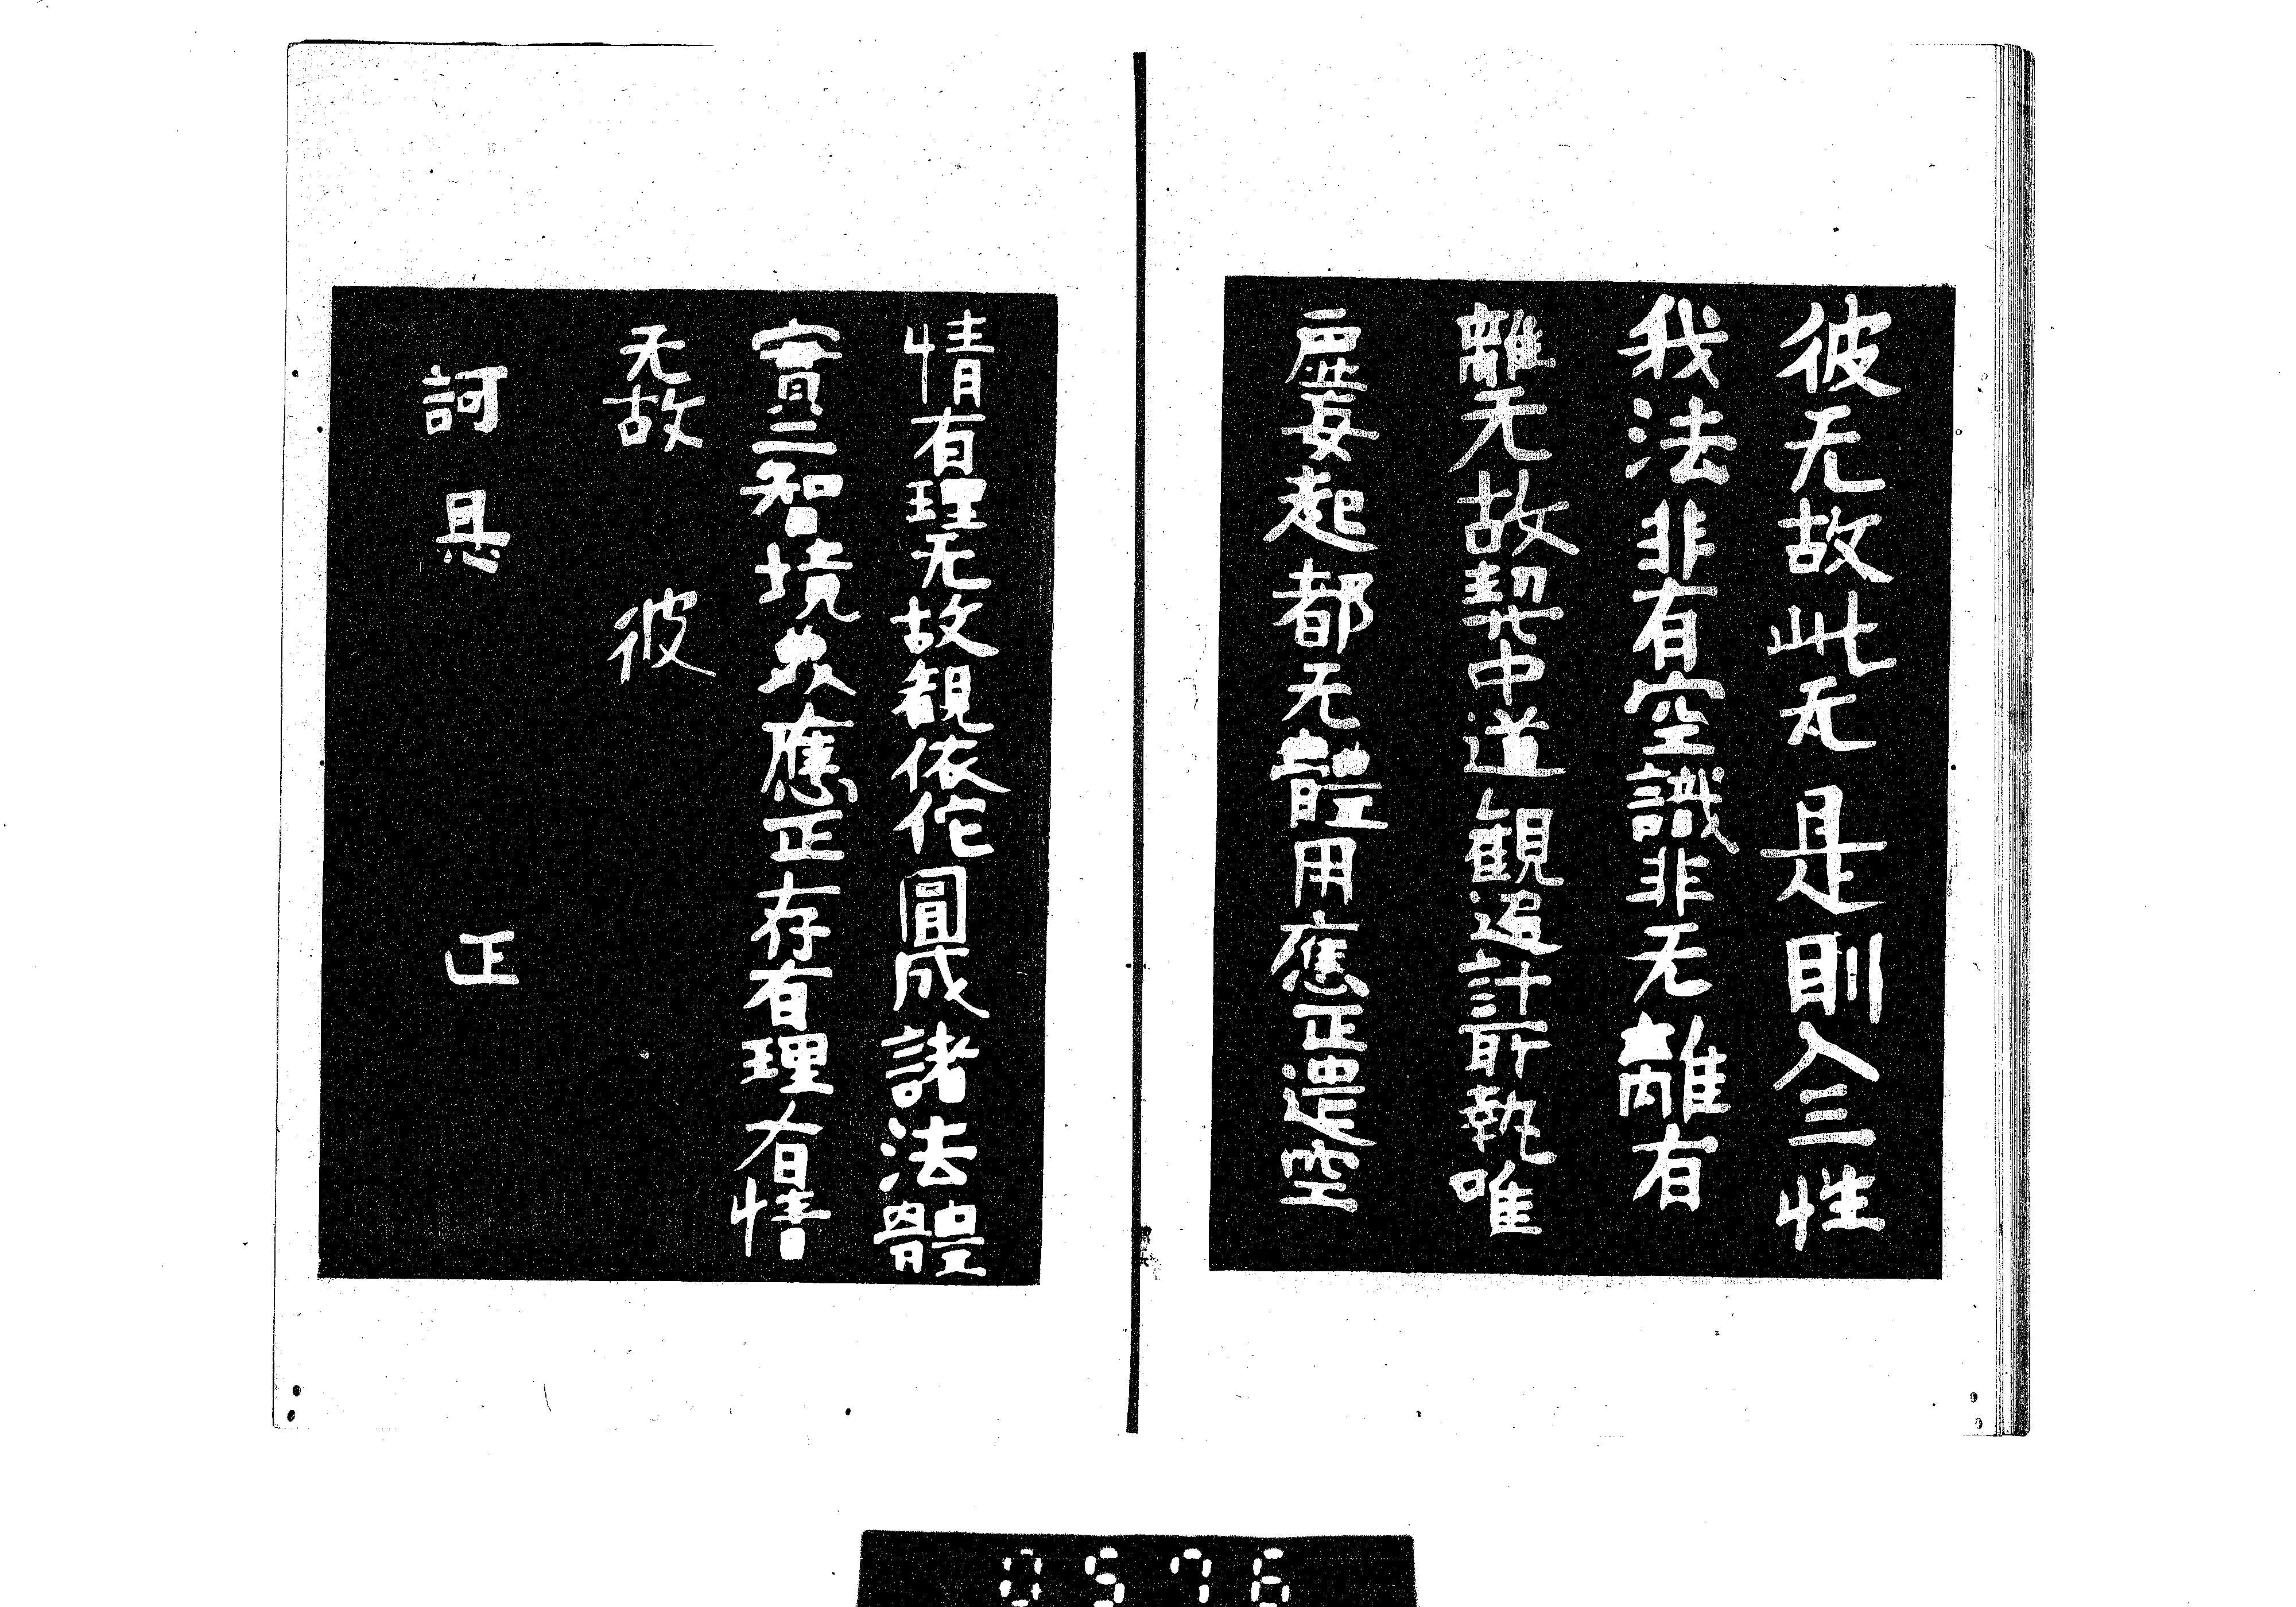 彼无故此无是則入三性
我法非有空識非无離有
離无故契中道觀遍計所執唯
虛妄起都无體用應正遣空
情有理无故觀依佗圓成諸法體
實二智境界應正存有理有情
无故 彼
訶 恳 正
0576